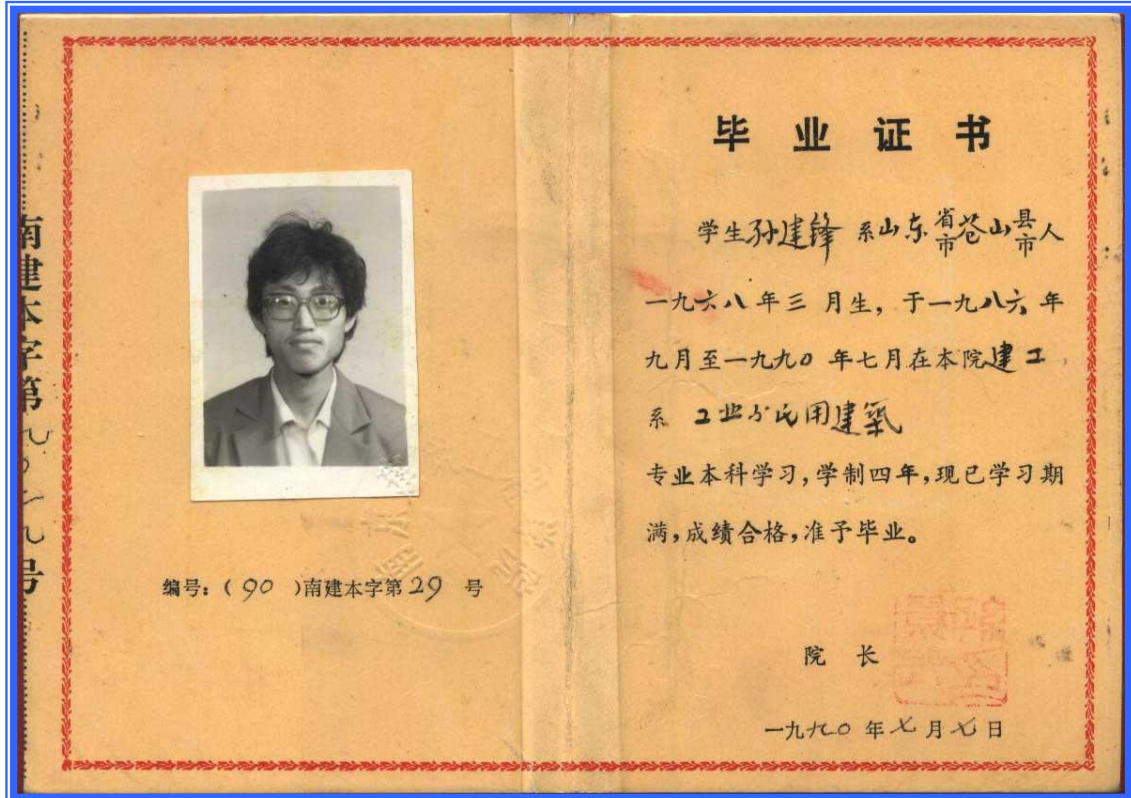 编号：（90）南建本字第29号
毕业证书
学生孙建锋 系山东省市苍山县市人
一九六八年三月生，于一九八六年
九月至一九九0年七月在本院建工
系 工业与民用建筑
专业本科学习，学制四年，现已学习期
满，成绩合格，准予毕业。
院长
一九九0年七月七日
南建本字第九0二九号